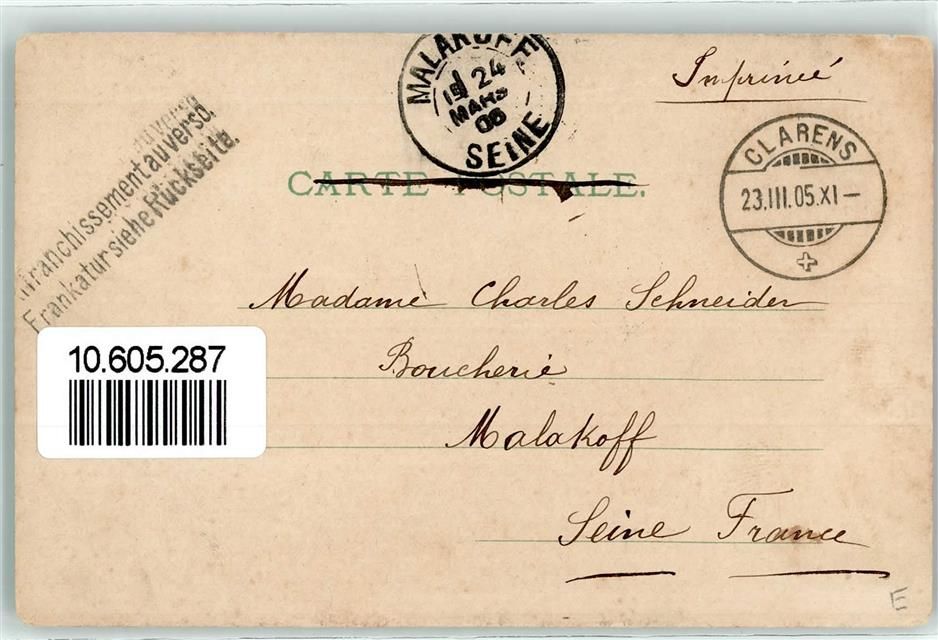 MALAKOFF
24
MARS
SEINE
Imprimé
CLARENS
23.III.05.XI–
CARTE POSTALE.
Affranchissement au verso.
Frankatur siehe Rückseite.
Madame Charles Schneider
Boucherie
Malakoff
Seine France
10.605.287
E